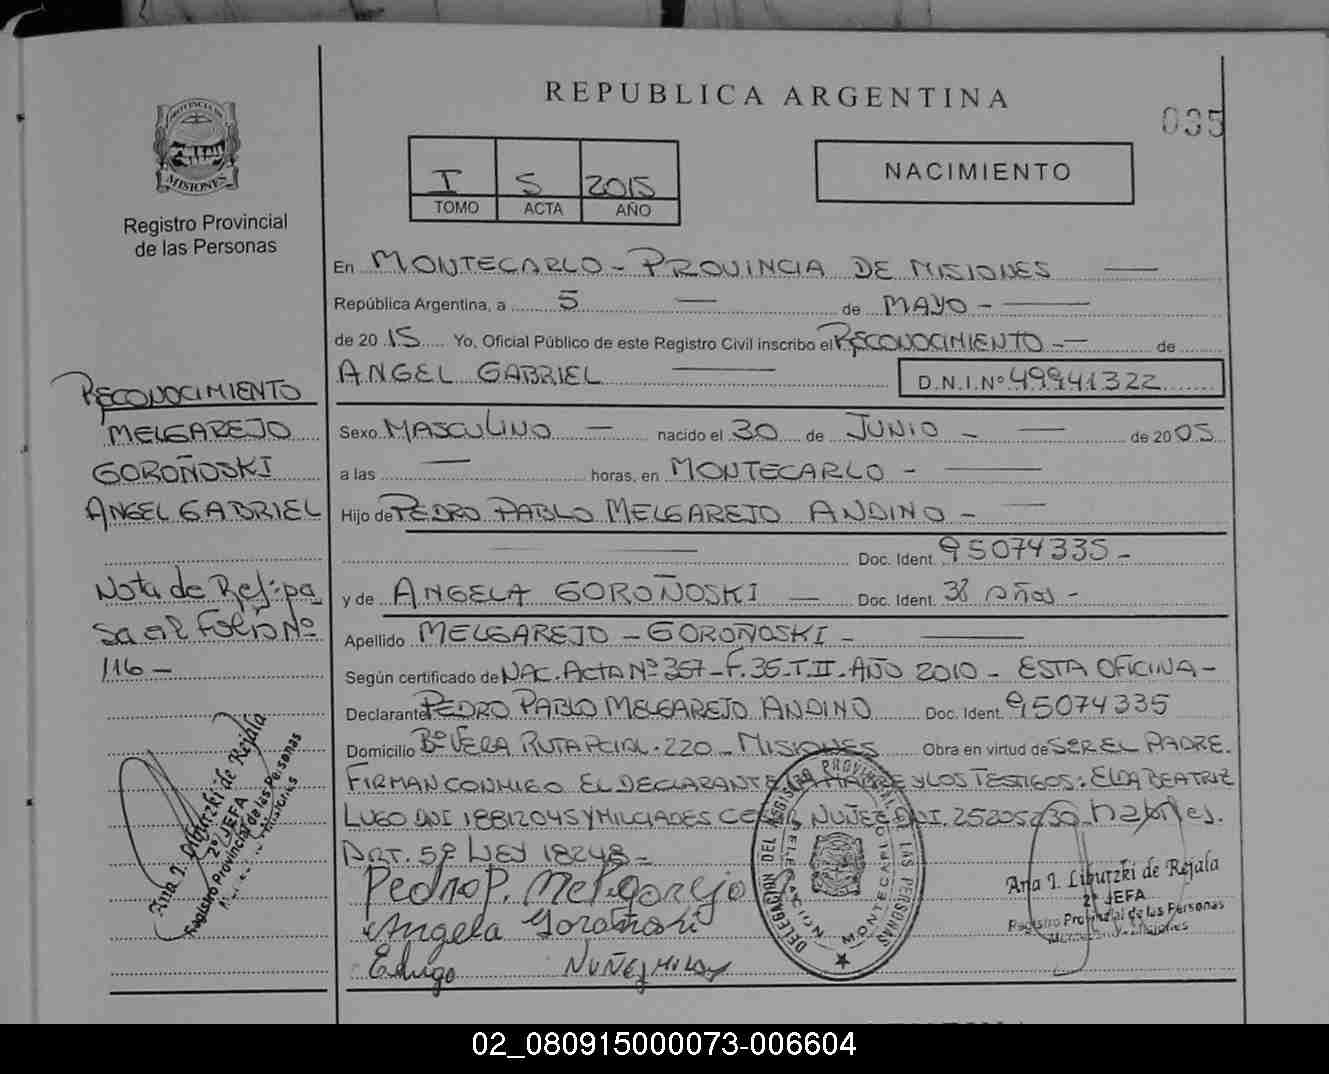 REPUBLICA ARGENTINA
035
PROVINCIA DE
MISIONES
Registro Provincial
de las Personas
I 5 2015
TOMO ACTA AÑO
NACIMIENTO
En MONTECARLO - PROVINCIA DE MISIONES
República Argentina, a 5 de MAYO -
de 2015 Yo, Oficial Público de este Registro Civil inscribo el RECONOCIMIENTO - de
ANGEL GABRIEL D.N.I.Nº 49941322
Sexo MASCULINO - nacido el 30 de JUNIO - de 2005
a las - horas, en MONTECARLO -
Hijo de PEDRO PABLO MELGAREJO ANDINO -
Doc. Ident. 95074335 -
y de ANGELA GOROÑOSKI - Doc. Ident. 38 años -
Apellido MELGAREJO - GOROÑOSKI -
Según certificado de NAC. ACTA Nº 367 - F. 35 - T. II - AÑO 2010 - ESTA OFICINA -
Declarante PEDRO PABLO MELGAREJO ANDINO Doc. Ident. 95074335
Domicilio Bº VERA RUTA PCIAL. 220 - MISIONES Obra en virtud de SER EL PADRE.
FIRMAN CONMIGO EL DECLARANTE LA MADRE Y LOS TESTIGOS: ELDA BEATRIZ
LUGO DNI 18812045 Y MILCIADES CESAR NUÑEZ DNI. 25205230 hábiles.
ART. 5º LEY 18248 -
Pedro P. Melgarejo
Angela Goroñoski
Elugo NUÑEZ
DELEGACION DEL REGISTRO PROVINCIAL DE LAS PERSONAS
DELEGACION MONTECARLO
Ana I. Liburzki de Rejala
2º JEFA
Registro Provincial de las Personas
Misiones
RECONOCIMIENTO
MELGAREJO
GOROÑOSKI
ANGEL GABRIEL
Nota de Ref: pa
sa al Folio Nº
116 -
Ana I. Liburzki de Rejala
2º JEFA
Registro Provincial de las Personas
Misiones
02_080915000073-006604